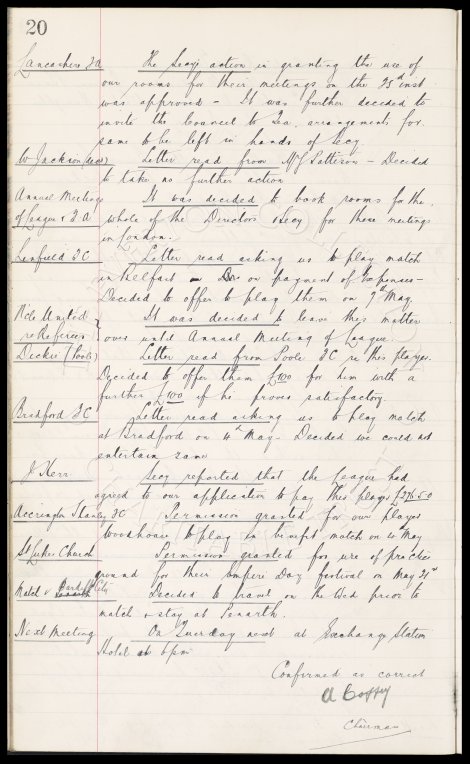 20
Lancashire F.A. The Secy's action in granting the use of
our rooms for their meetings on the 25d inst
was approved - It was further decided to
invite the Council to Tea. arrangements for
same to be left in hands of Secy.
W Jackson Letter read from Mr Pattison - Decided
to take no further action
Annual Meetings It was decided to book rooms for the
of League & F.A. whole of the Directors & Secy for these meetings
in London.
Linfield FC Letter read asking us to play match
in Belfast on payment of Expenses -
Decided to offer to play them on 9th May.
N'cle United It was decided to leave this matter
re Referees over until Annual Meeting of League
Dickie (Poole) Letter read from Poole FC re this player.
Decided to offer them £100 for him with a
further £100 if he proves satisfactory.
Bradford FC Letter read asking us to play match
at Bradford on 4th May - Decided we could not
entertain same
J Kerr Secy reported that the League had
agreed to our application to pay this player
Accrington Stanley FC Permission granted for our player
Woodhouse to play in benefit match on May
St Lukes Church Permission granted for use of practice
ground for their Empire Day festival on May 21st
Match v Cardiff City Decided to travel on the Wed prior to
match & stay at Penarth.
Next Meeting On Tuesday next at Exchange Station
Hotel at 6pm
Confirmed as correct
Chairman